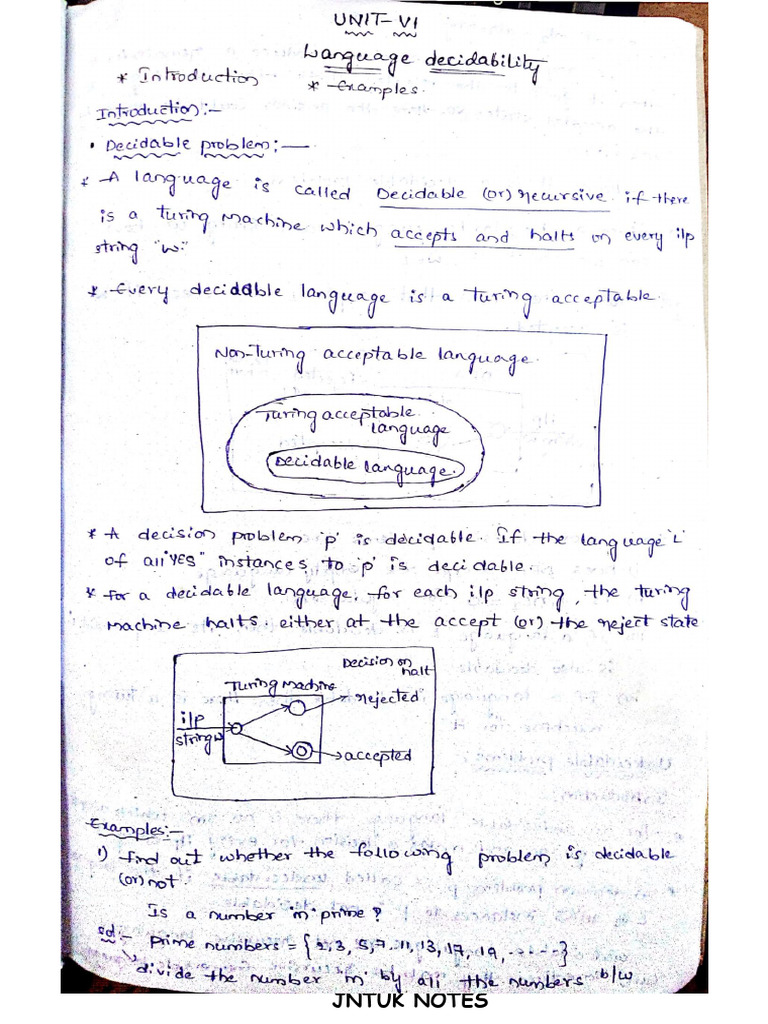 UNIT-VI
Language decidability
* Introduction * Examples.
Introduction:-
• Decidable problem:—
* A language is called Decidable (or) recursive if there
is a Turing Machine which accepts and halts on every i/p
string "w."
* Every decidable language is a Turing acceptable.
Non-Turing acceptable language.
Turing acceptable
language
Decidable language.
* A decision problem 'p' is decidable. If the language 'L'
of all "YES" instances to 'p' is decidable.
* for a decidable language, for each i/p string, the turing
machine halts either at the accept (or) the reject state
Decision on
halt
Turing Machine
rejected
i/p
string w
accepted
Examples:-
1) find out whether the following problem is decidable
(or) not
Is a number 'm' prime?
sol:- prime numbers = {2,3, 5,7, 11, 13, 17, 19, ......}
divide the number 'm' by all the numbers b/w
JNTUK NOTES